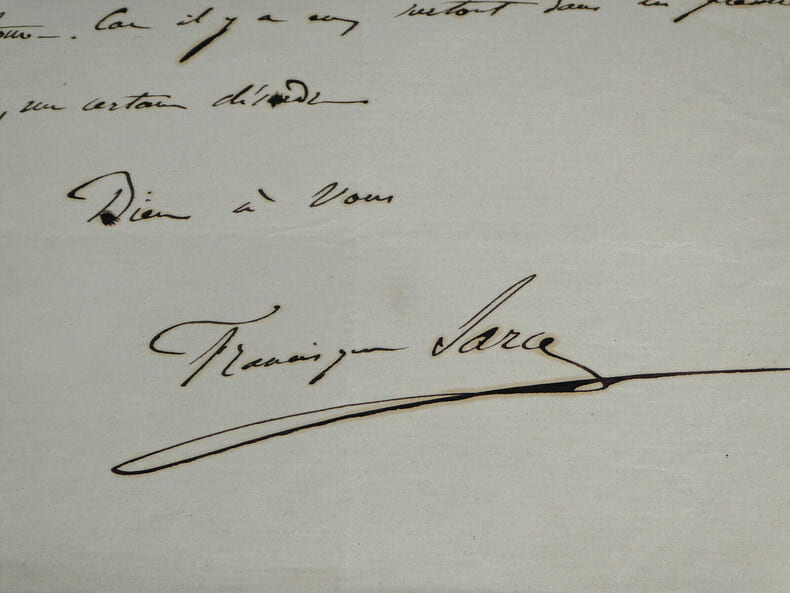 Car il y a eu surtout dans les
, un certain désordre
Bien à Vous
Francisque Sarcey